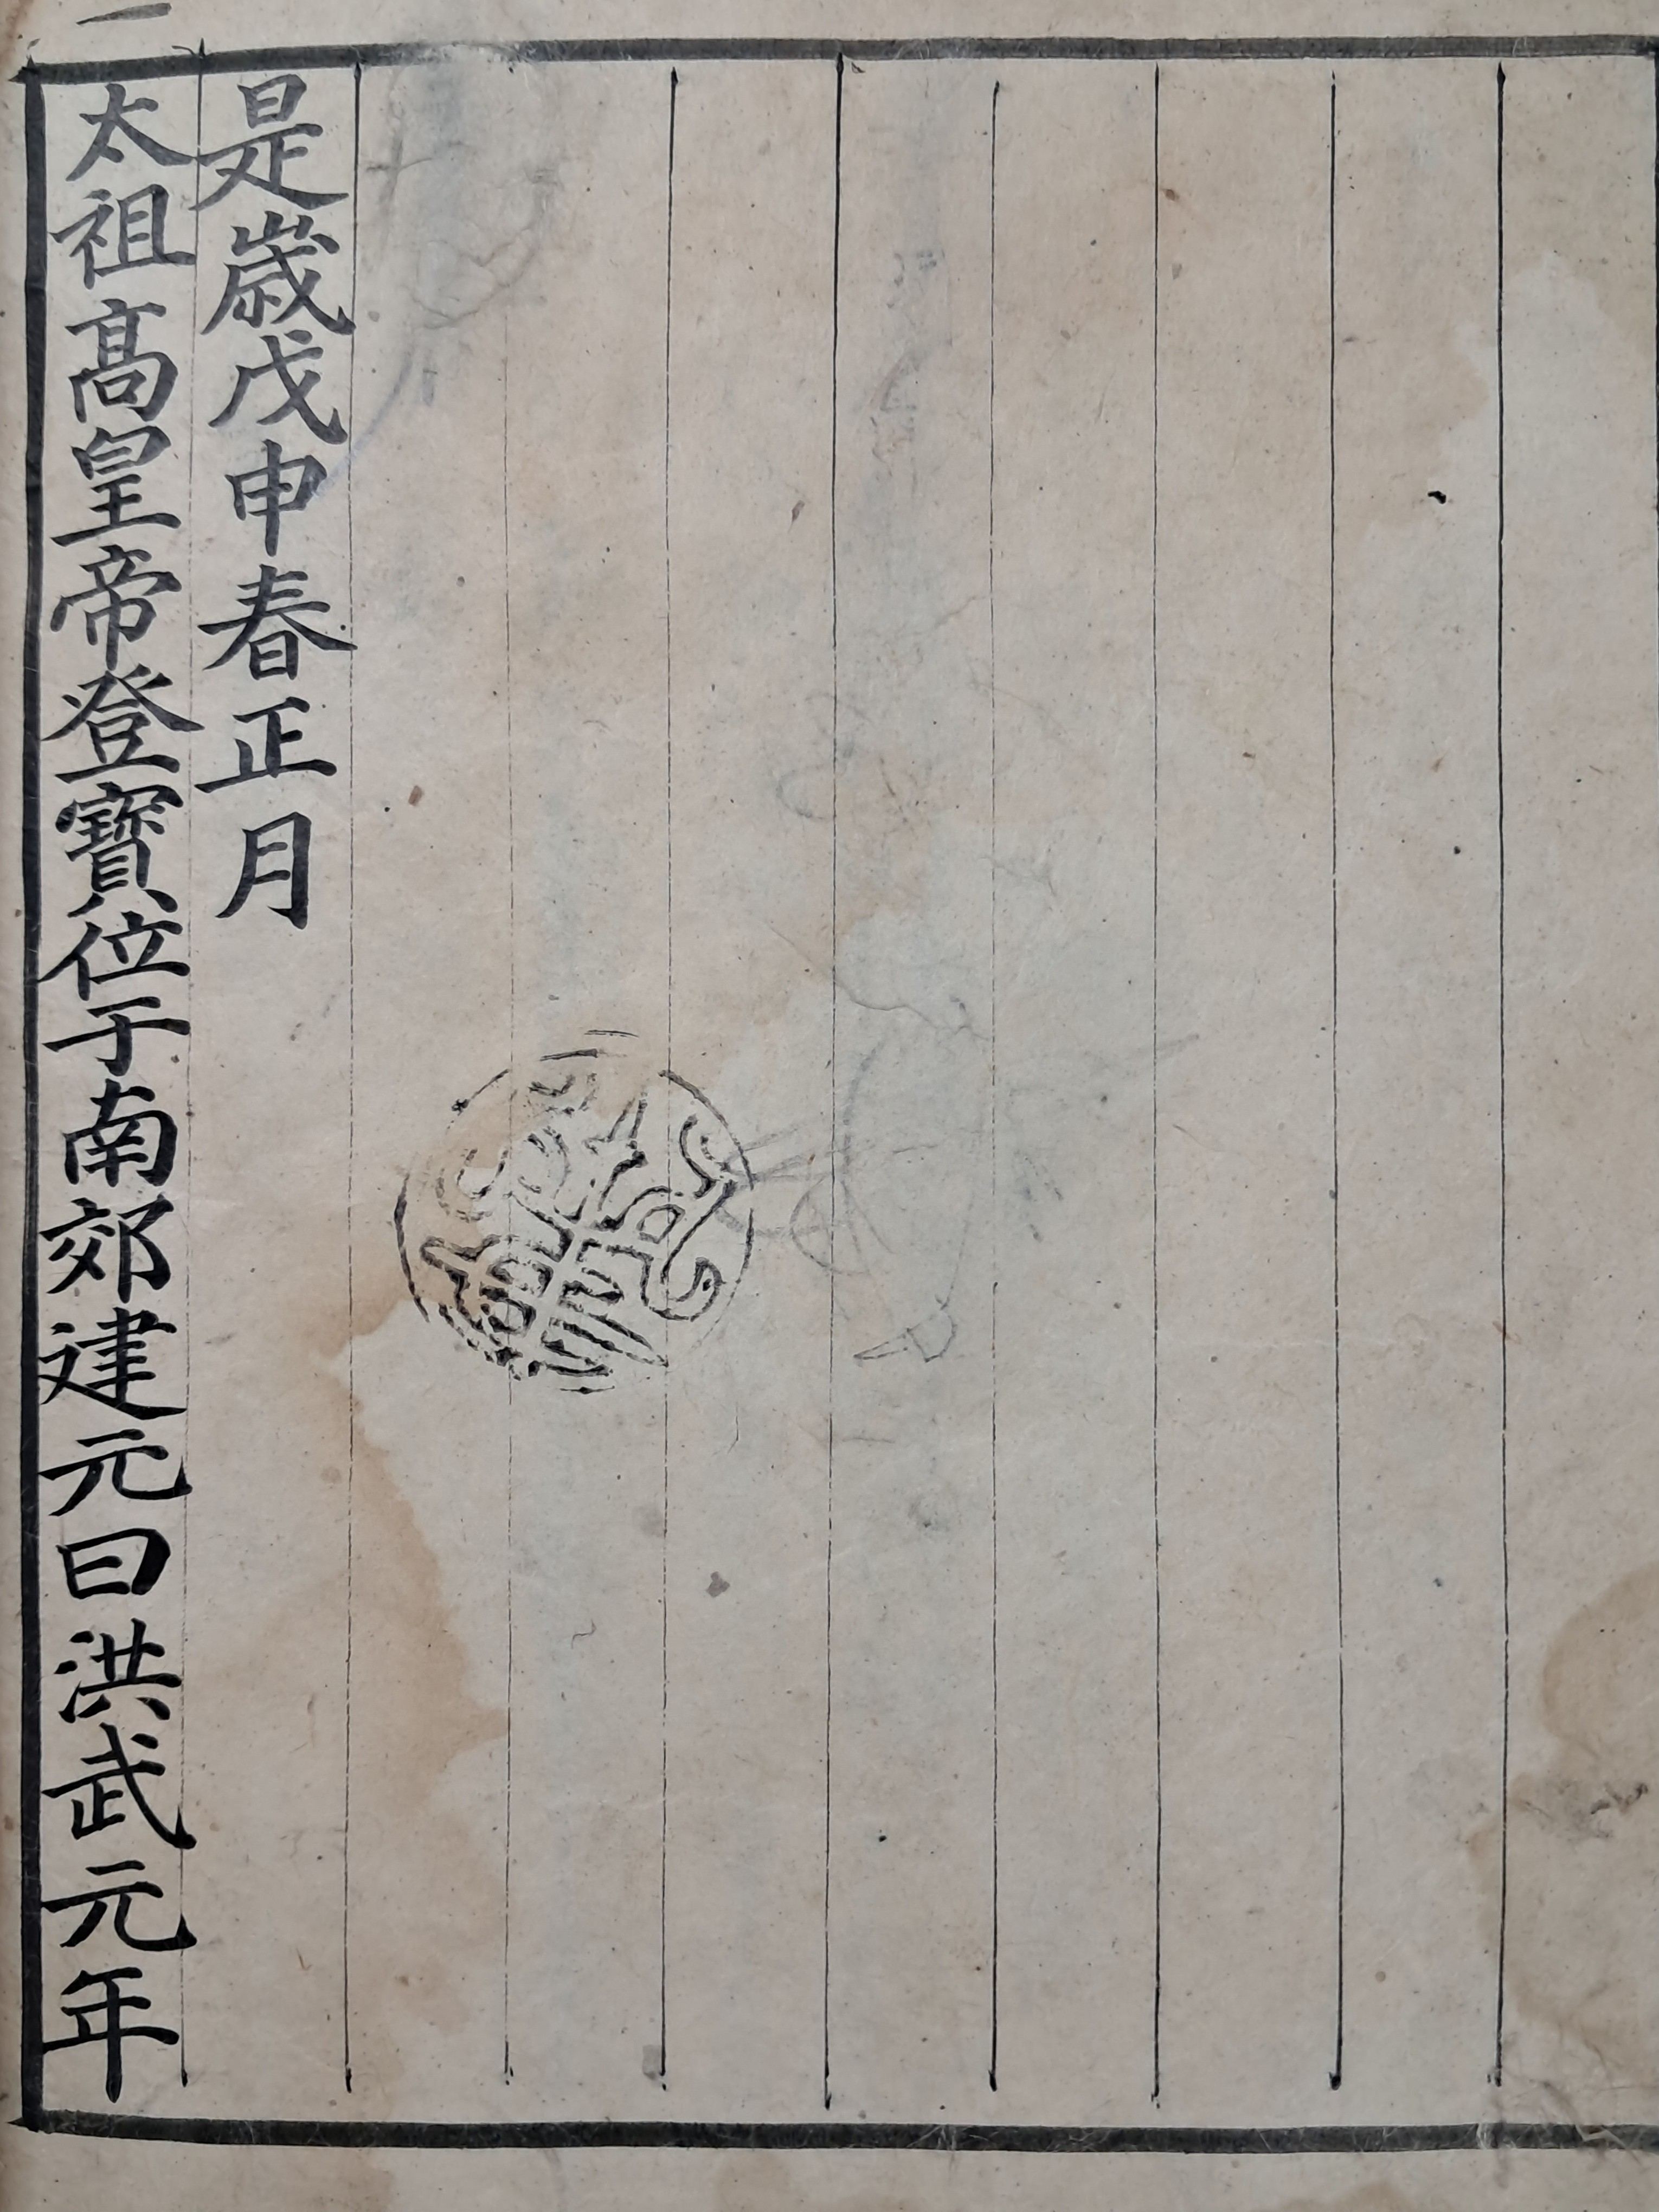 是歲戊申春正月
太祖高皇帝登寶位于南郊建元曰洪武元年